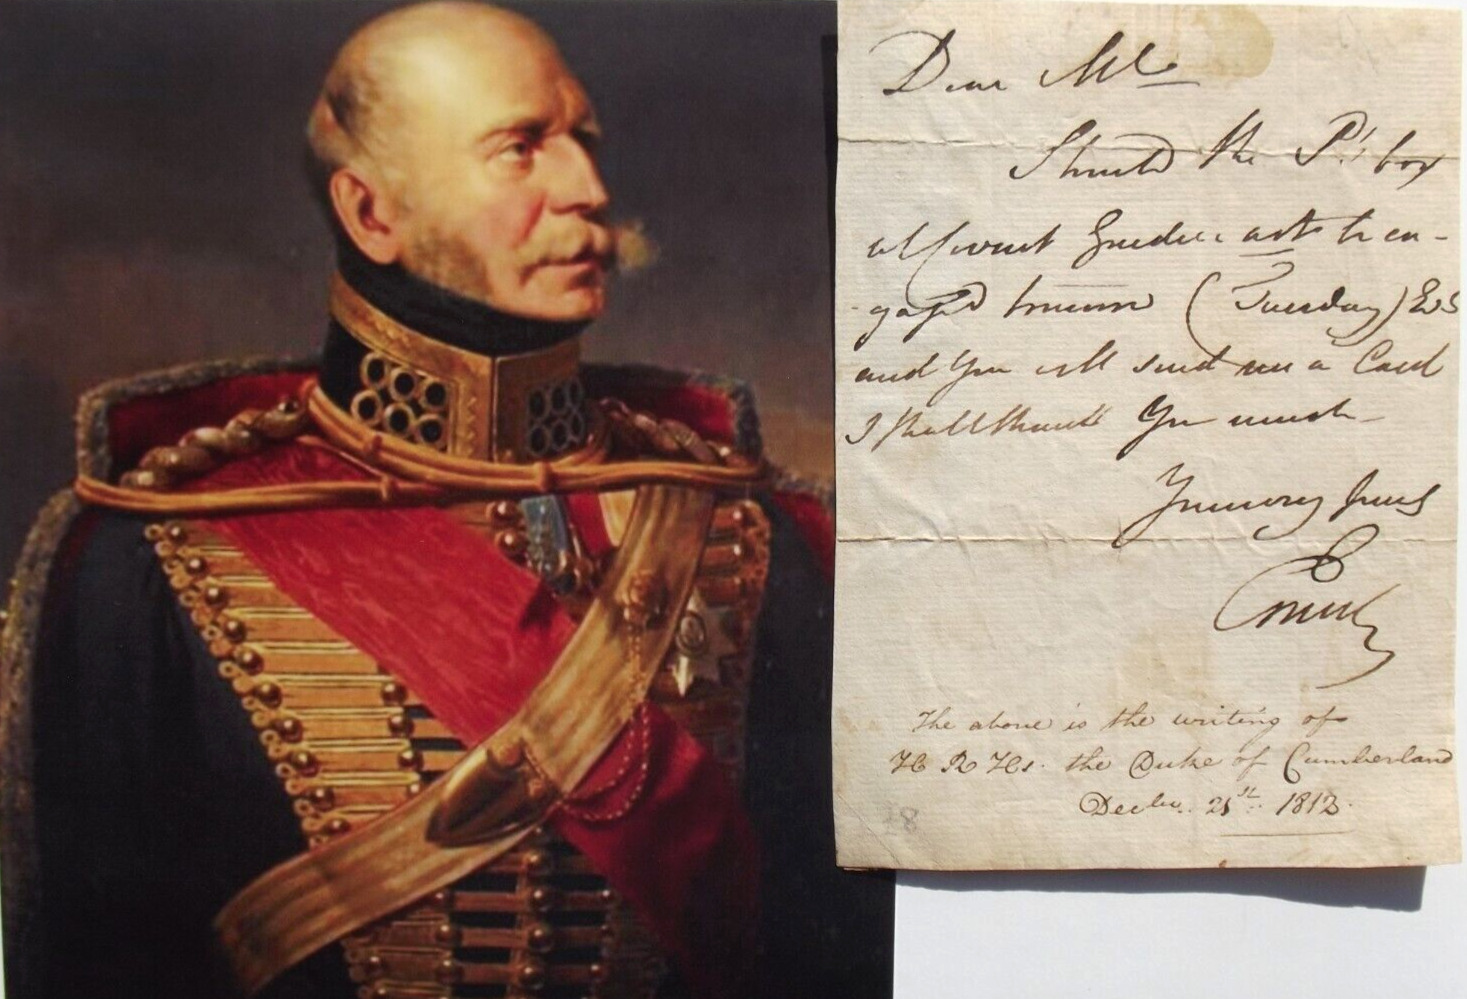 Dear
Should the Ps box
at Covent Garden not be en-
-gaged tomorrow (Tuesday)
and you will send me a Card
I shall thank you much
Yours very truly
Ernest
The above is the writing of
H R Hs. the Duke of Cumberland
Decbr. 21st 1812.
£8